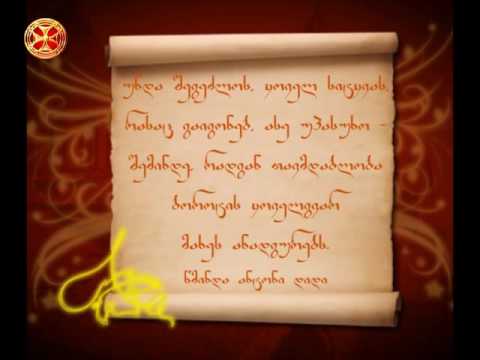 უნდა შეგეძლოს, ყოველ სიტყვას,
რასაც გაიგონებ, ასე უპასუხო -
შემინდე, რადგან თავმდაბლობა
ბოროტის ყოველგვარ
მახეს ანადგურებს.
წმინდა ანტონი დიდი